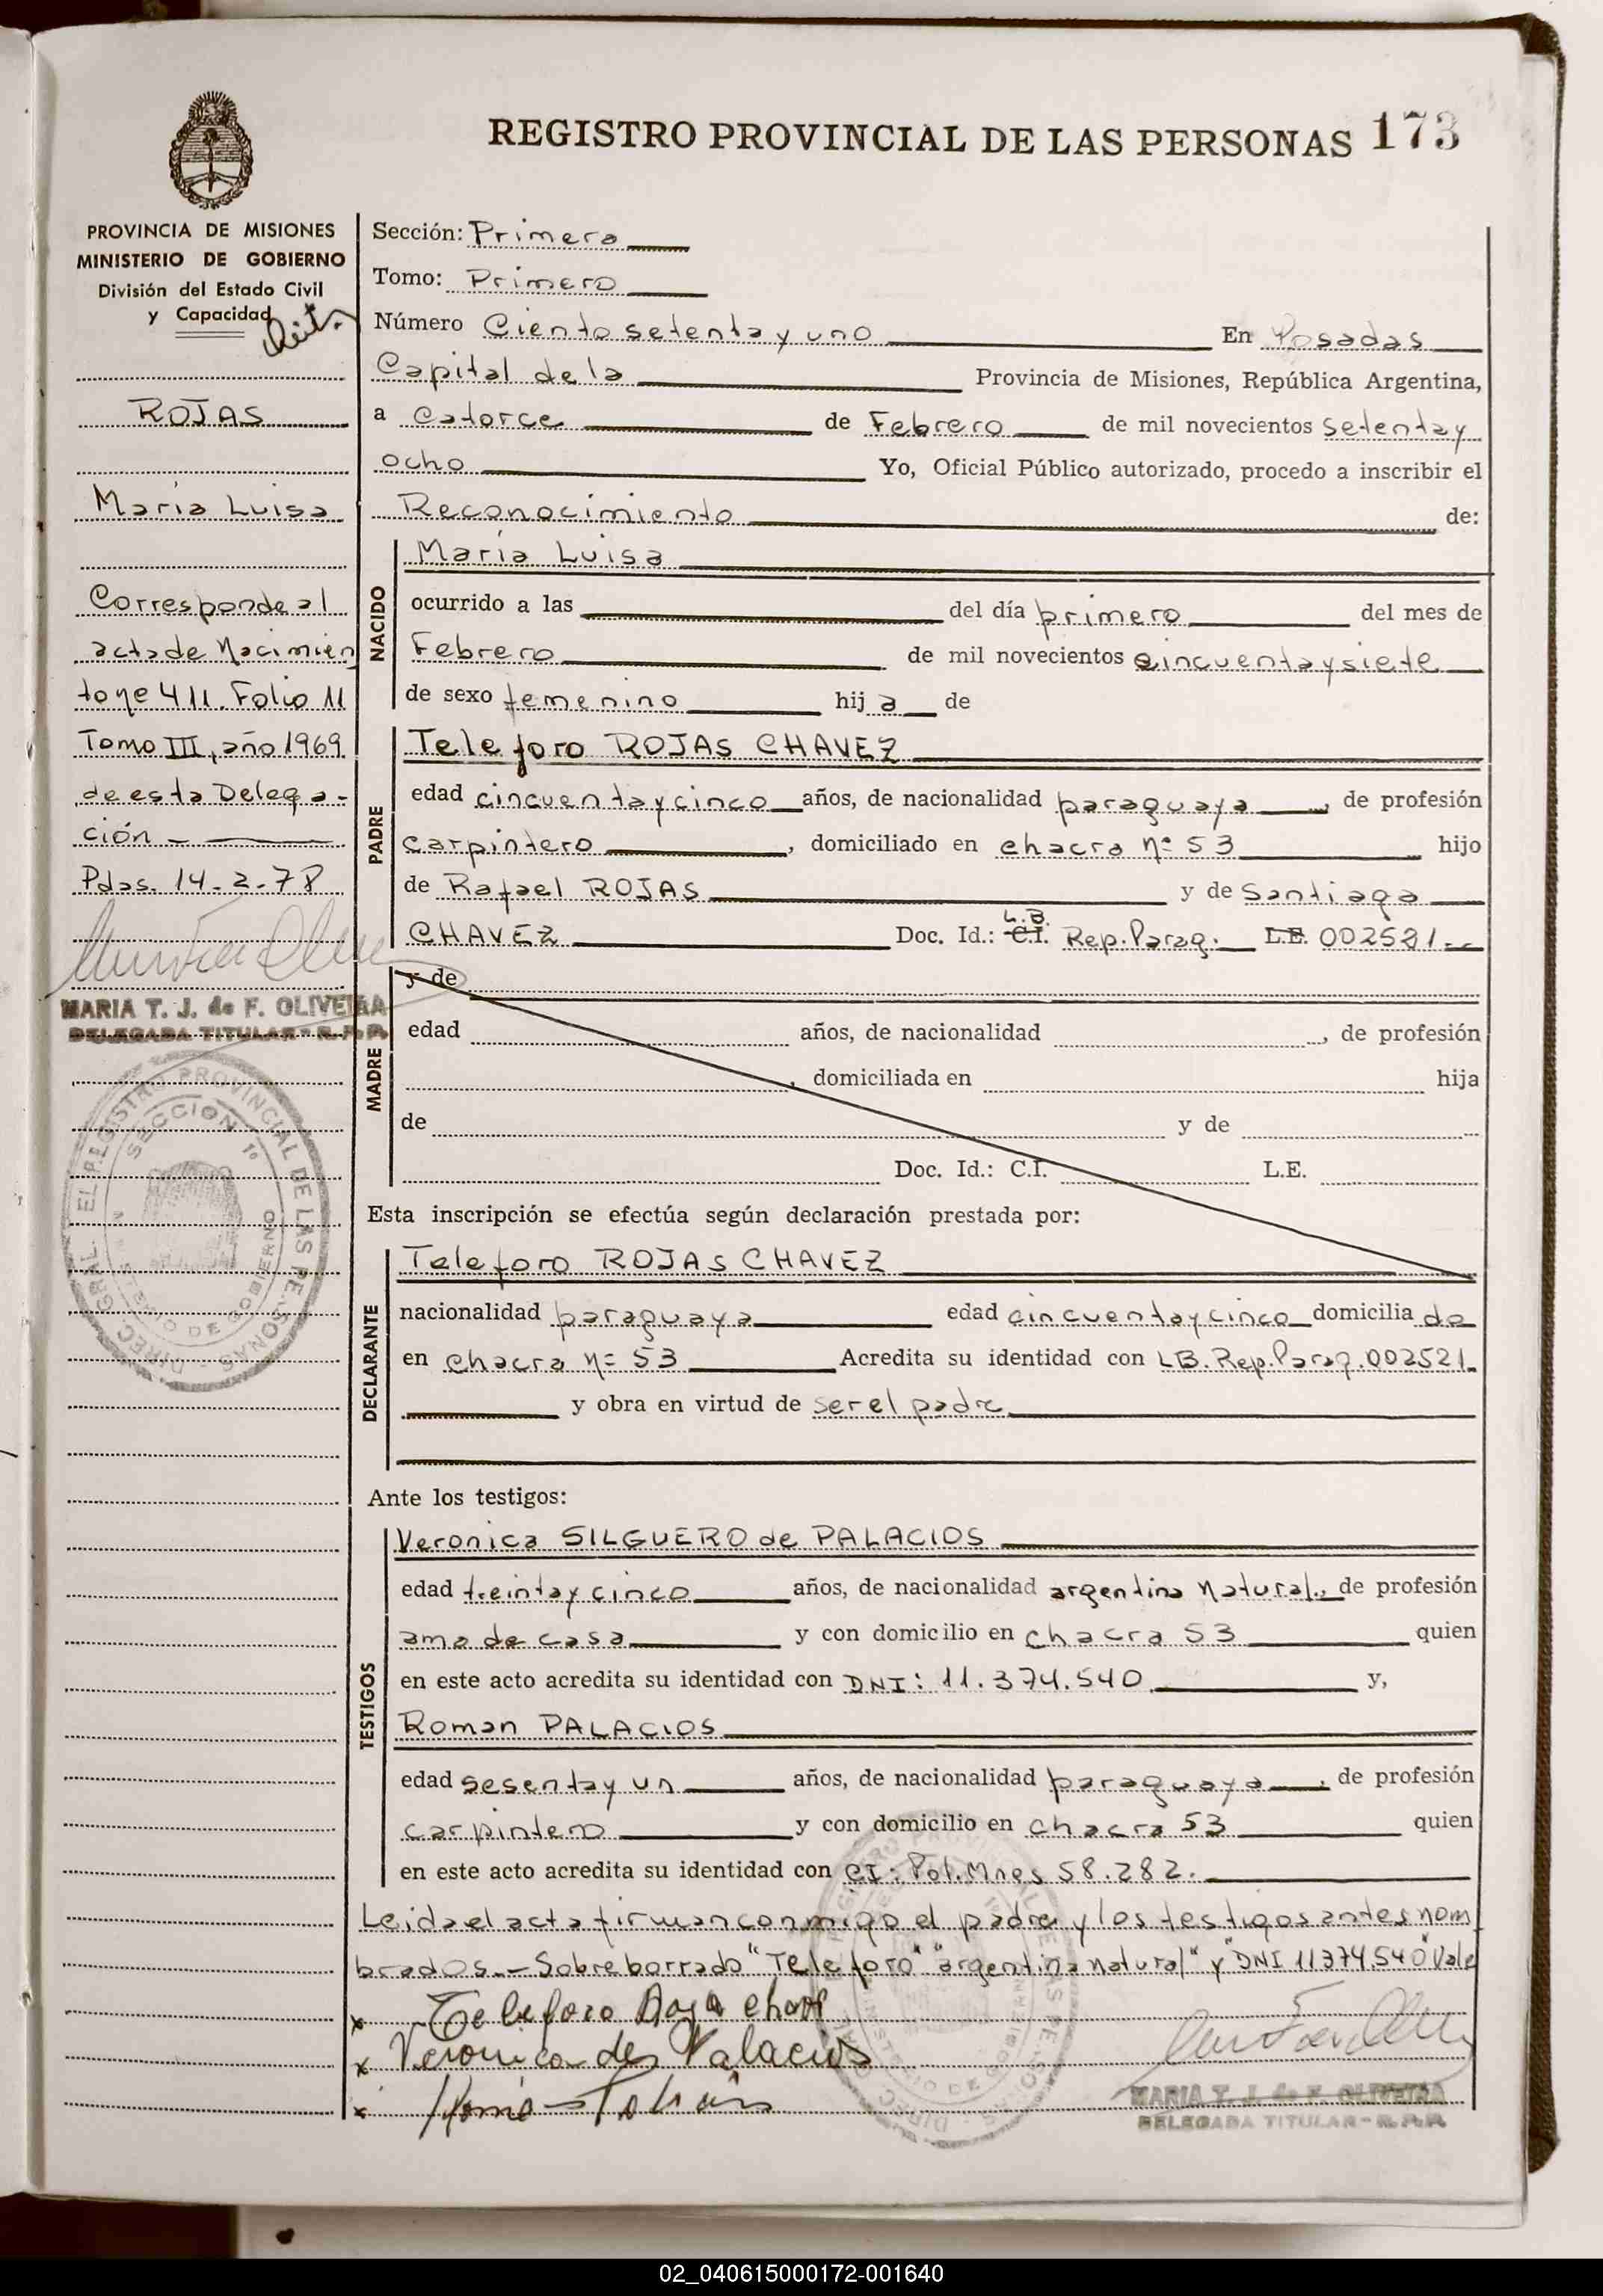 REGISTRO PROVINCIAL DE LAS PERSONAS 173
PROVINCIA DE MISIONES
MINISTERIO DE GOBIERNO
División del Estado Civil
y Capacidad
ROJAS
María Luisa
Corresponde al
acta de Nacimien
to nº 411. Folio 11
Tomo III, año 1969
de esta Delega-
ción -
Pdas. 14-2-78
MARIA T. J. de F. OLIVEIRA
DELEGADA TITULAR - R.P.P.
DIREC. GRAL. EL REGISTRO PROVINCIAL DE LAS PERSONAS
SECCION 1º
MINISTERIO DE GOBIERNO
Sección: Primera
Tomo: Primero
Número Ciento setenta y uno En Posadas
Capital de la Provincia de Misiones, República Argentina,
a Catorce de Febrero de mil novecientos setenta y
ocho Yo, Oficial Público autorizado, procedo a inscribir el
Reconocimiento de:
NACIDO
María Luisa
ocurrido a las del día primero del mes de
Febrero de mil novecientos cincuenta y siete
de sexo femenino hij a de
PADRE
Teleforo ROJAS CHAVEZ
edad cincuenta y cinco años, de nacionalidad paraguaya, de profesión
carpintero, domiciliado en chacra nº 53 hijo
de Rafael ROJAS y de Santiaga
CHAVEZ Doc. Id.: C.I. L.B. Rep. Parag. L.E. 002521
MADRE
y de
edad años, de nacionalidad , de profesión
, domiciliada en hija
de y de
Doc. Id.: C.I. L.E.
Esta inscripción se efectúa según declaración prestada por:
DECLARANTE
Teleforo ROJAS CHAVEZ
nacionalidad paraguaya edad cincuenta y cinco domicilia do
en chacra nº 53 Acredita su identidad con LB. Rep. Parag. 002521
y obra en virtud de ser el padre
Ante los testigos:
TESTIGOS
Veronica SILGUERO de PALACIOS
edad treinta y cinco años, de nacionalidad argentina natural, de profesión
ama de casa y con domicilio en chacra 53 quien
en este acto acredita su identidad con DNI: 11.374.540 y,
Roman PALACIOS
edad sesenta y un años, de nacionalidad paraguaya, de profesión
carpintero y con domicilio en chacra 53 quien
en este acto acredita su identidad con CI: Pol. Mnes 58.282.
Leida el acta firman conmigo el padre y los testigos antes nom
brados.- Sobreborrado "Teleforo" "argentina natural" y "DNI 11374.540" Vale
x Teleforo
x Veronica de Palacios
x
MARIA T. J. de F. OLIVEIRA
DELEGADA TITULAR - R.P.P.
02_040615000172-001640